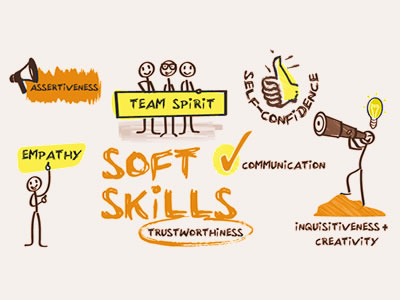 ASSERTIVENESS
TEAM SPIRIT
SELF-CONFIDENCE
EMPATHY
SOFT
SKILLS
COMMUNICATION
TRUSTWORTHINESS
INQUISITIVENESS +
CREATIVITY